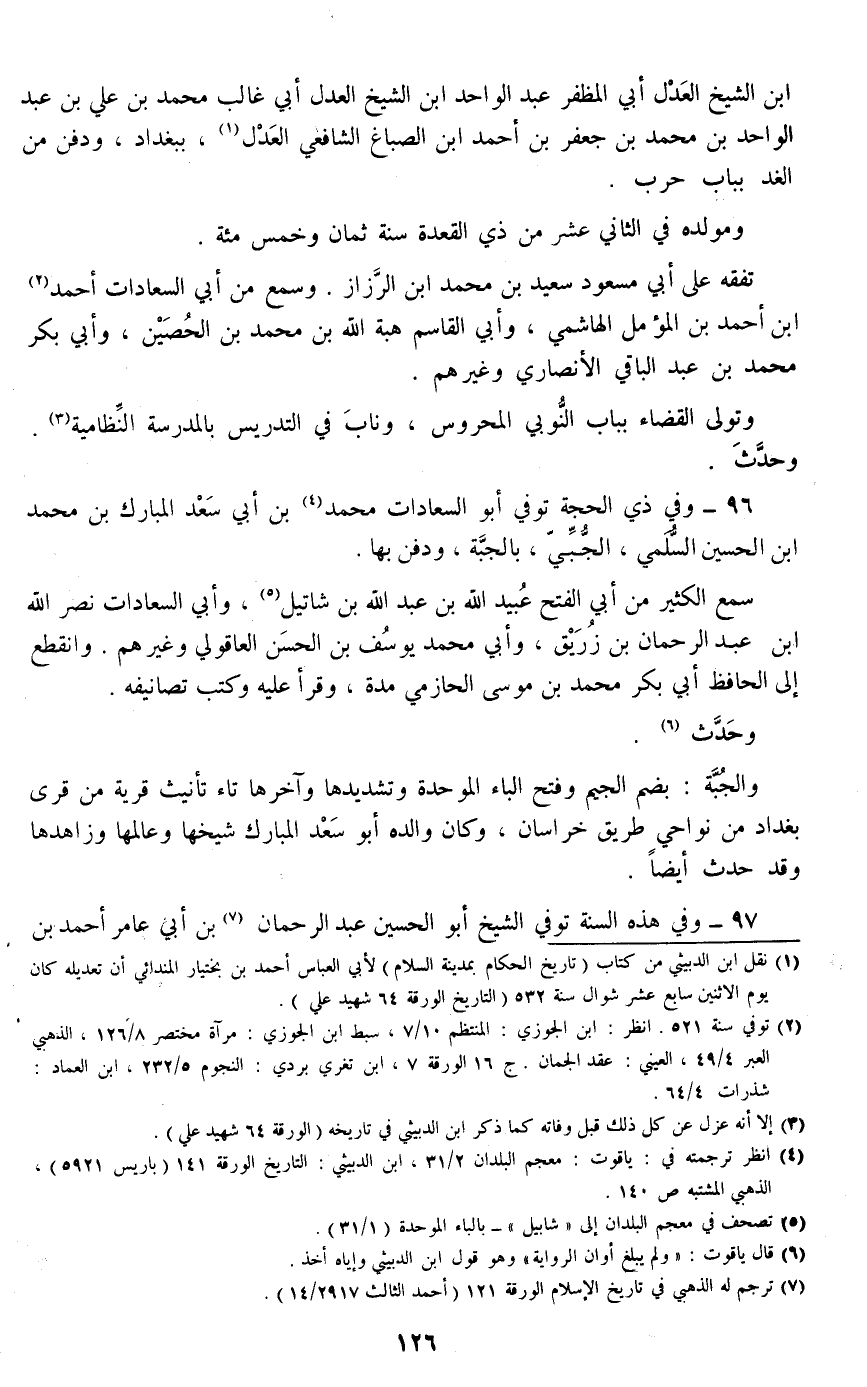 ابن الشيخ العَدْل أبي المظفر عبد الواحد ابن الشيخ العدل أبي غالب محمد بن علي بن عبد
الواحد بن محمد بن جعفر بن أحمد ابن الصباغ الشافعي العَدْل(١) ، ببغداد ، ودفن من
الغد بباب حرب .
ومولده في الثاني عشر من ذي القعدة سنة ثمان وخمس مئة .
تفقه على أبي مسعود سعيد بن محمد ابن الرَّزاز . وسمع من أبي السعادات أحمد(٢)
ابن أحمد بن المؤمل الهاشمي ، وأبي القاسم هبة الله بن محمد بن الحُصَيْن ، وأبي بكر
محمد بن عبد الباقي الأنصاري وغيرهم .
وتولى القضاء بباب النُّوبي المحروس ، ونابَ في التدريس بالمدرسة النِّظامية(٣) .
وحدَّثَ .
٩٦ ـ وفي ذي الحجة توفي أبو السعادات محمد(٤) بن أبي سَعْد المبارك بن محمد
ابن الحسين السُّلَمي ، الجُبِّيّ ، بالجبَّة ، ودفن بها .
سمع الكثير من أبي الفتح عُبيد الله بن عبد الله بن شاتيل(٥) ، وأبي السعادات نصر الله
ابن عبد الرحمان بن زُرَيْق ، وأبي محمد يوسُف بن الحسَن العاقولي وغيرهم . وانقطع
إلى الحافظ أبي بكر محمد بن موسى الحازمي مدة ، وقرأ عليه وكتب تصانيفه .
وحَدَّث (٦) .
والجُبَّة : بضم الجيم وفتح الباء الموحدة وتشديدها وآخرها تاء تأنيث قرية من قرى
بغداد من نواحي طريق خراسان ، وكان والده أبو سَعْد المبارك شيخها وعالمها وزاهدها
وقد حدث أيضاً .
٩٧ ـ وفي هذه السنة توفي الشيخ أبو الحسين عبد الرحمان (٧) بن أبي عامر أحمد بن
(١) نقل ابن الدبيثي من كتاب ( تاريخ الحكام بمدينة السلام ) لأبي العباس أحمد بن بختيار المندائي أن تعديله كان
يوم الاثنين سابع عشر شوال سنة ٥٣٢ ( التاريخ الورقة ٦٤ شهيد علي ) .
(٢) توفي سنة ٥٢١ . انظر : ابن الجوزي : المنتظم ٧/١٠ ، سبط ابن الجوزي : مرآة مختصر ١٢٦/٨ ، الذهبي
العبر ٤٩/٤ ، العيني : عقد الجمان . ج ١٦ الورقة ٧ ، ابن تغري بردي : النجوم ٢٣٢/٥ ، ابن العماد :
شذرات ٦٤/٤ .
(٣) إلا أنه عزل عن كل ذلك قبل وفاته كما ذكر ابن الدبيثي في تاريخه ( الورقة ٦٤ شهيد علي ) .
(٤) انظر ترجمته في : ياقوت : معجم البلدان ٣١/٢ ، ابن الدبيثي : التاريخ الورقة ١٤١ ( باريس ٥٩٢١ ) ،
الذهبي المشتبه ص ١٤٠ .
(٥) تصحف في معجم البلدان إلى « شابيل » ـ بالباء الموحدة ( ٣١/١ ) .
(٩) قال ياقوت : « ولم يبلغ أوان الرواية » وهو قول ابن الدبيثي وإياه أخذ .
(٧) ترجم له الذهبي في تاريخ الإسلام الورقة ١٢١ ( أحمد الثالث ١٤/٢٩١٧ ) .
١٢٦